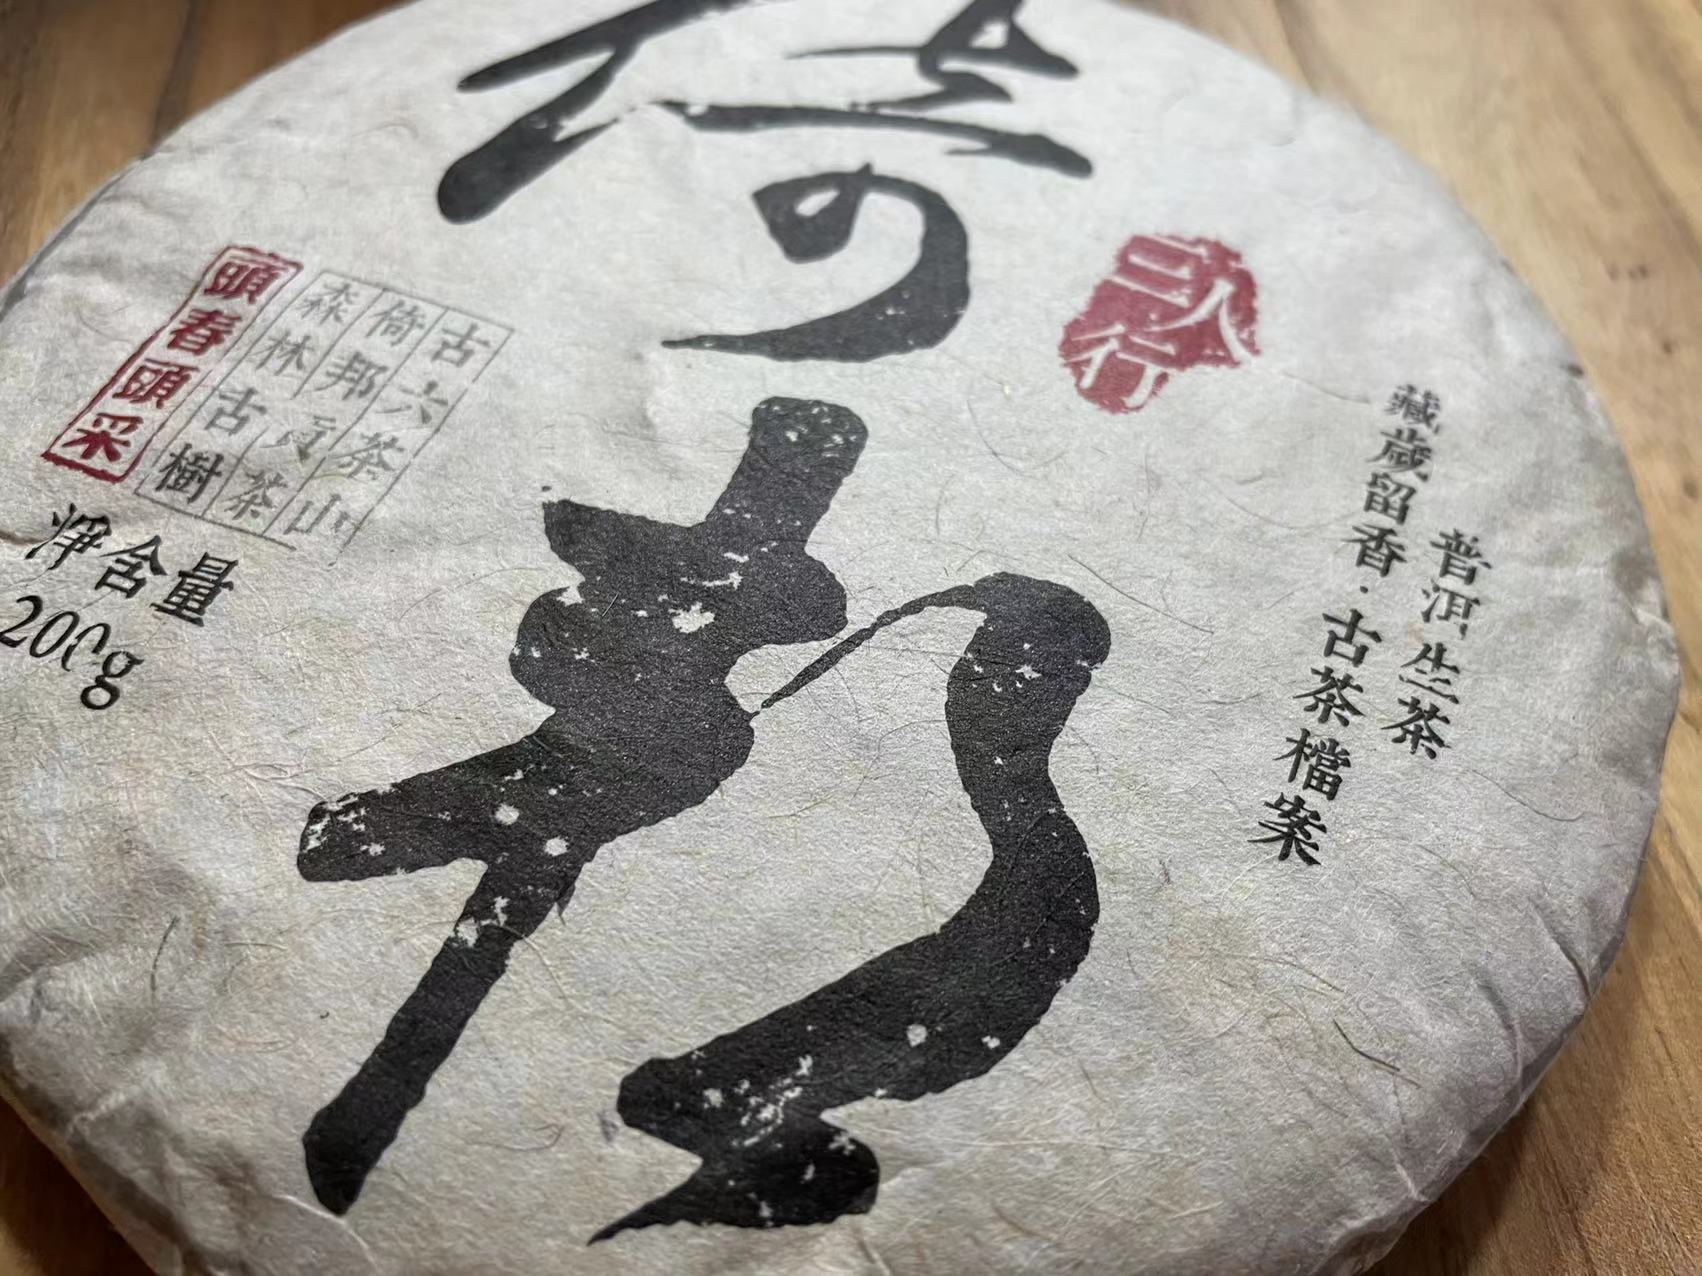 倚邦
三人行
普洱生茶
藏歲留香·古茶檔案
古六茶山
倚邦貢茶
森林古樹
頭春頭采
淨含量
200g